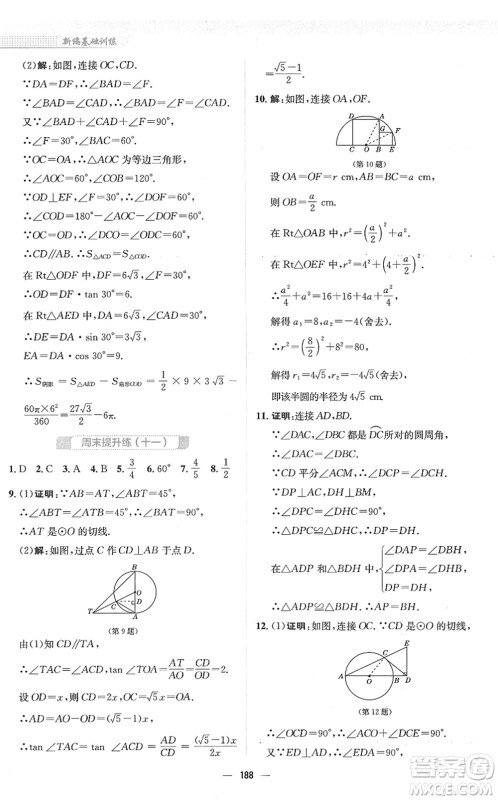 新编基础训练
(2)解:如图,连接 OC,CD.
∵DA=DF,∴∠BAD=∠F.
∵∠BAD=∠CAD,∴∠CAD=∠F.
又∵∠BAD+∠CAD+∠F=90°,
∴∠F=30°,∠BAC=60°.
∵OC=OA,∴△AOC 为等边三角形,
∴∠AOC=60°,∠COB=120°.
∵OD⊥EF,∠F=30°,∴∠DOF=60°.
∴∠COD=180°-∠AOC-∠DOF=60°.
∵OC=OD,∴∠DCO=60°=∠AOC,
∴CD∥AB,∴S△ACD=S△COD.
在 Rt△ODF 中,DF=6√3,∠F=30°,
∴OD=DF·tan 30°=6.
在 Rt△AED 中,DA=6√3,∠CAD=30°,
∴DE=DA·sin 30°=3√3,
EA=DA·cos 30°=9.
∴S阴影=S△AED-S扇形COD=1/2×9×3√3-
60π×6²/360=27√3/2-6π.
周末提升练(十一)
1. D 2. C 3. A 4. B 5. 3/4 6. 60° 7. 4/5 8. 1/2
9. (1)证明:∵AB=AT,∠ABT=45°,
∴∠ABT=∠ATB=45°,
∴∠BAT=90°,即AB⊥AT.
∴AT是⊙O的切线.
(2)解:如图,过点 C 作 CD⊥AB 于点 D.
B
O
C
D
T
A
(第 9 题)
由(1)知 CD∥TA,
∴∠TAC=∠DCA,tan∠TOA=AT/AO=CD/OD.
设 OD=x,则 CD=2x,OC=√5x=OA.
∵AD=AO-OD=(√5-1)x,
∴tan∠TAC=tan∠ACD=AD/CD=(√5-1)x/2x
=(√5-1)/2.
10. 解:如图,连接 OA,OF.
D
A
F
O
B
E
(第 10 题)
设 OA=OF=r cm,AB=a cm,
则 OB=a/2 cm.
在 Rt△OAB 中,r²=(a/2)²+a².
在 Rt△OEF 中,r²=4²+(4+a/2)².
∴a²/4+a²=16+16+4a+a²/4,
解得 a₁=8,a₂=-4(舍去).
∴r²=(8/2)²+8²=80.
解得 r₁=4√5,r₂=-4√5(舍去).
即该半圆的半径为 4√5 cm.
11. 证明:如图,连接 AD,BD.
∵∠DAC,∠DBC 都是DC所对的圆周角,
∴∠DAC=∠DBC.
∵CD 平分∠ACM,DP⊥AC,DH⊥BM,
∴DP=DH.
∵DP⊥AP,DH⊥BM,
∴∠APD=∠BHD=90°.
在△ADP 和△BDH 中,{∠DAP=∠DBH,
∠DPA=∠DHB,
DP=DH,
∴△ADP≌△BDH,
∴AP=BH.
12. (1)证明:如图,连接 OC.∵CD是⊙O的切线,
E
C
A
O
B
D
(第 12 题)
∴∠OCD=90°,∴∠ACO+∠DCE=90°.
又∵ED⊥AD,∴∠EDA=90°,
188
答案圈
MXQE.COM